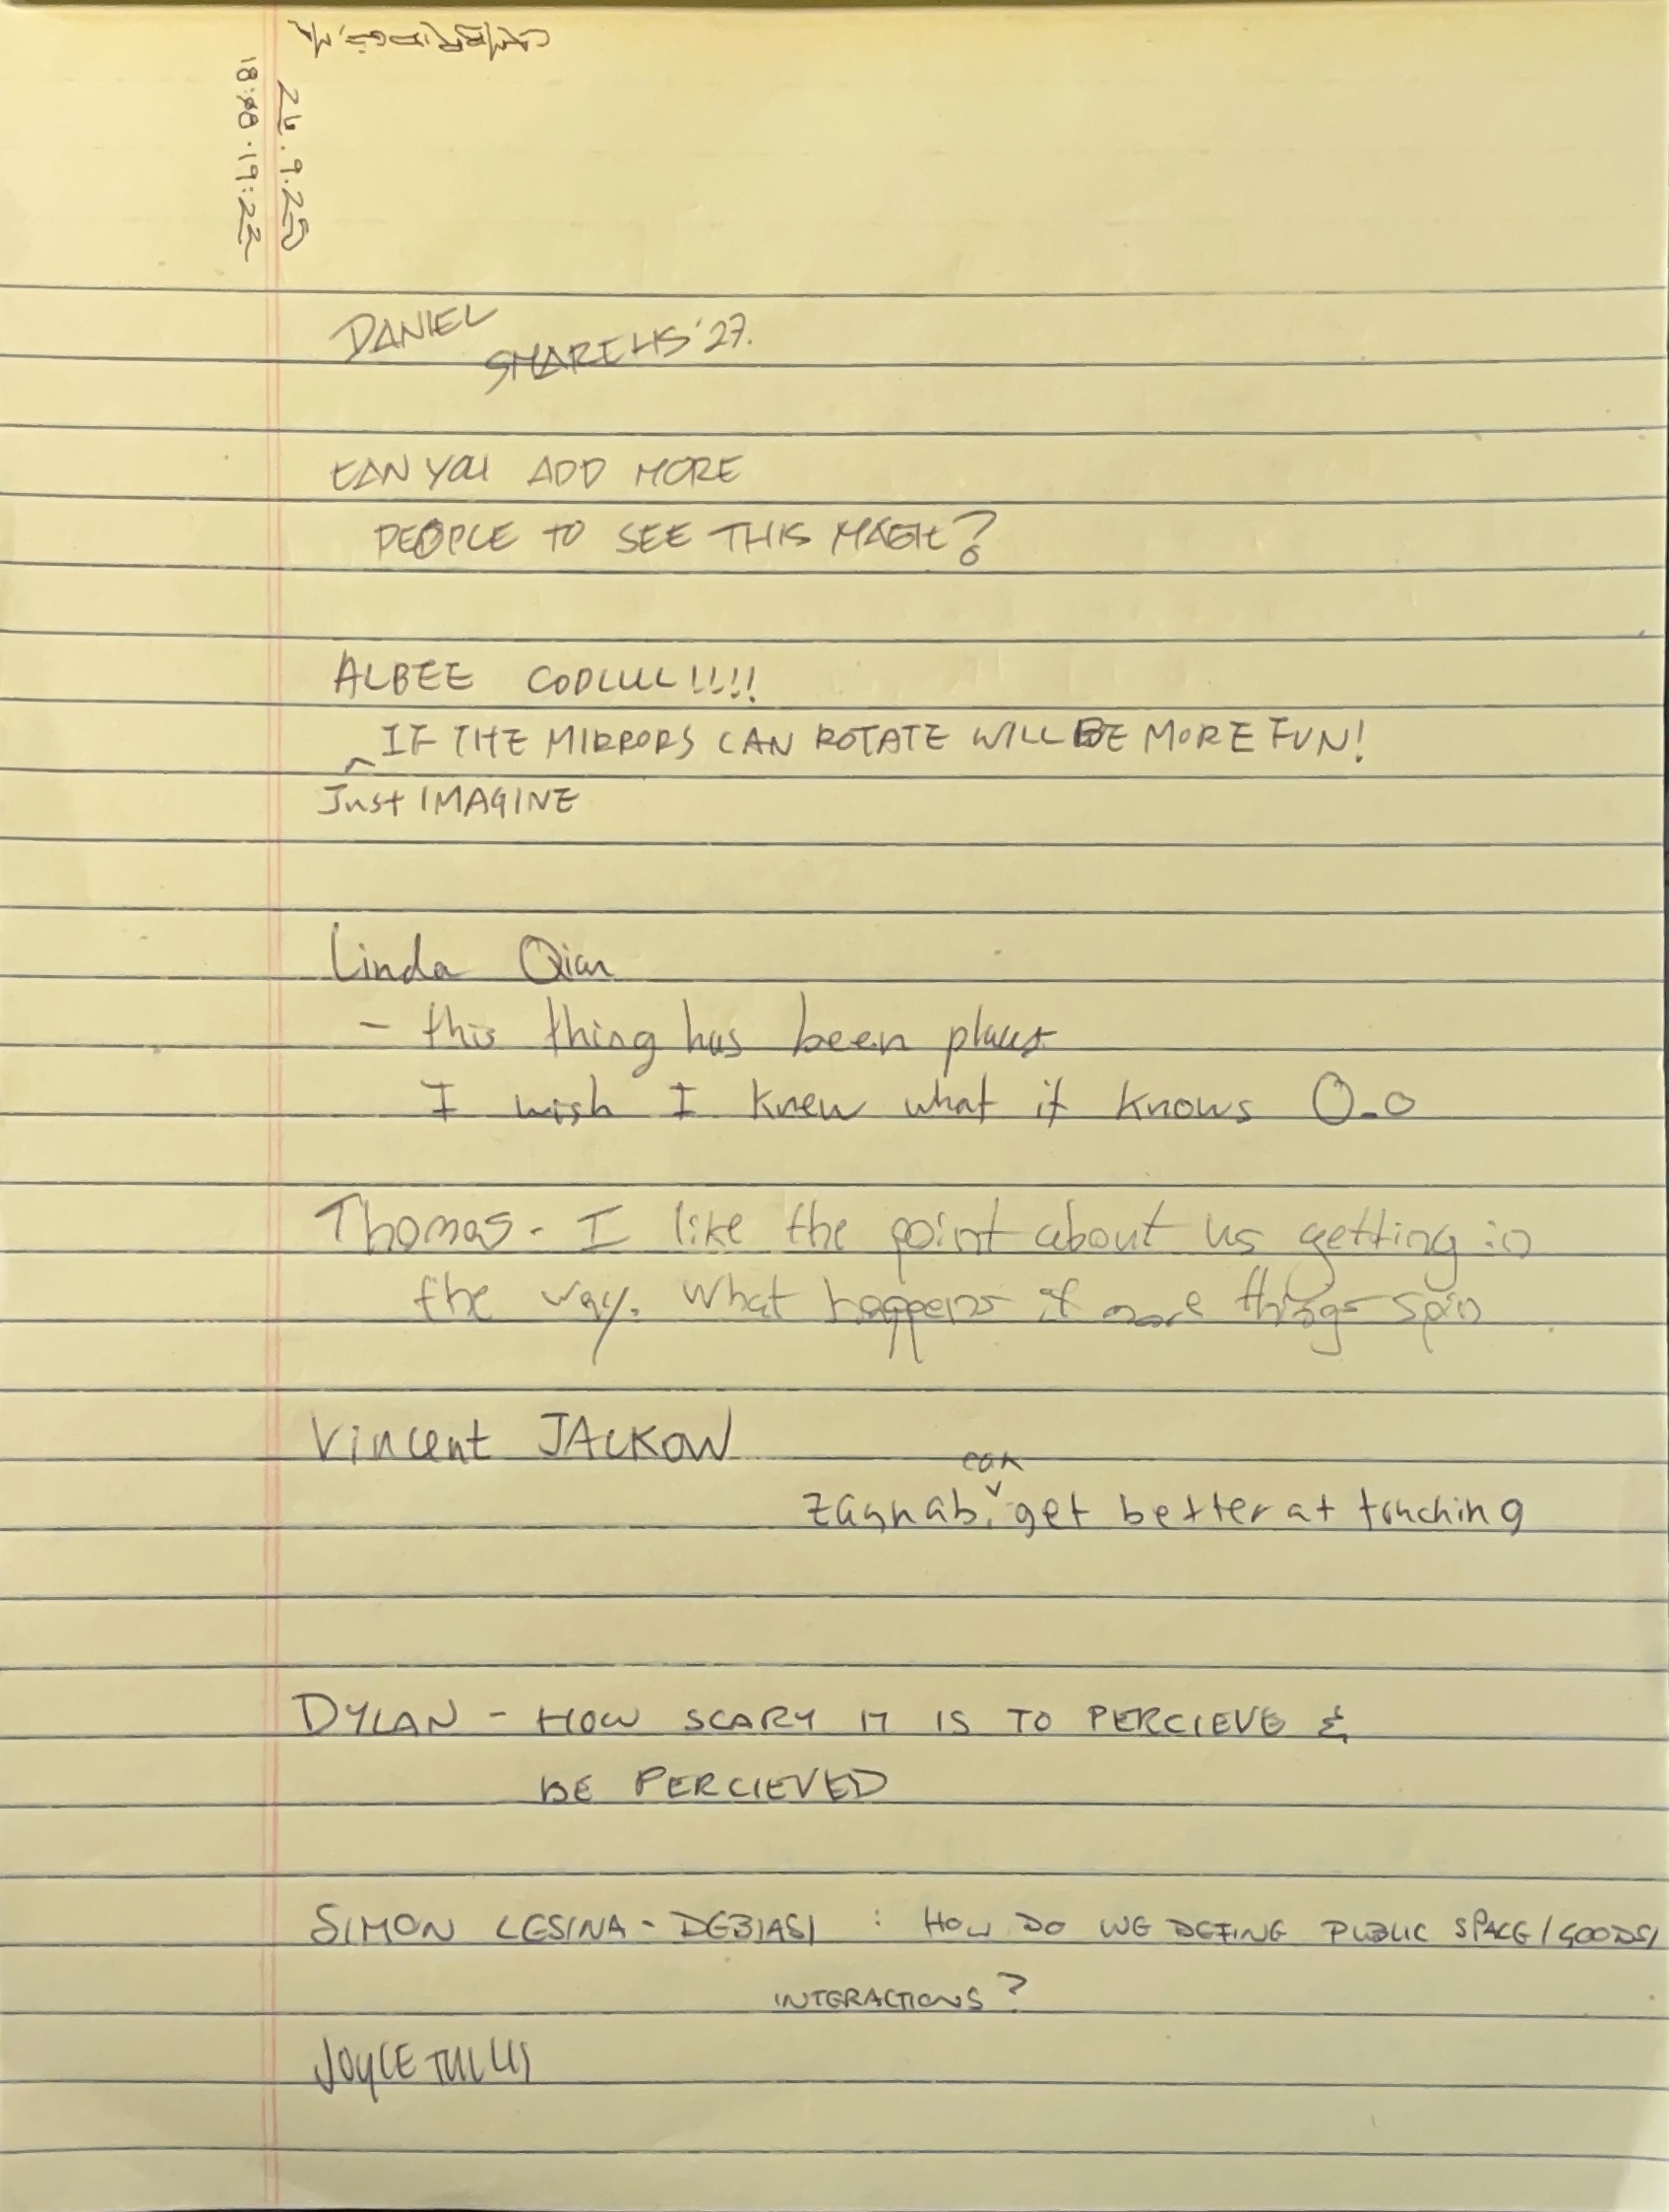 CAMBRIDGE, MA
26.9.25
18:48 - 19:22
DANIEL
'27.
CAN YOU ADD MORE
PEOPLE TO SEE THIS MAGIC?
ALBEE COOLLLL!!!!
^ IF THE MIRRORS CAN ROTATE WILL BE MORE FUN!
Just IMAGINE
Linda Qian
- this thing has been places
I wish I knew what it knows O_o
Thomas - I like the point about us getting in
the way. What happens if more things spin
Vincent JACKOW
can
zaynab ˅ get better at touching
DYLAN - HOW SCARY IT IS TO PERCIEVE &
BE PERCIEVED
SIMON LESINA-DEBIASI : HOW DO WE DEFINE PUBLIC SPACE/GOODS/
INTERACTIONS?
JOYCE TULLIS